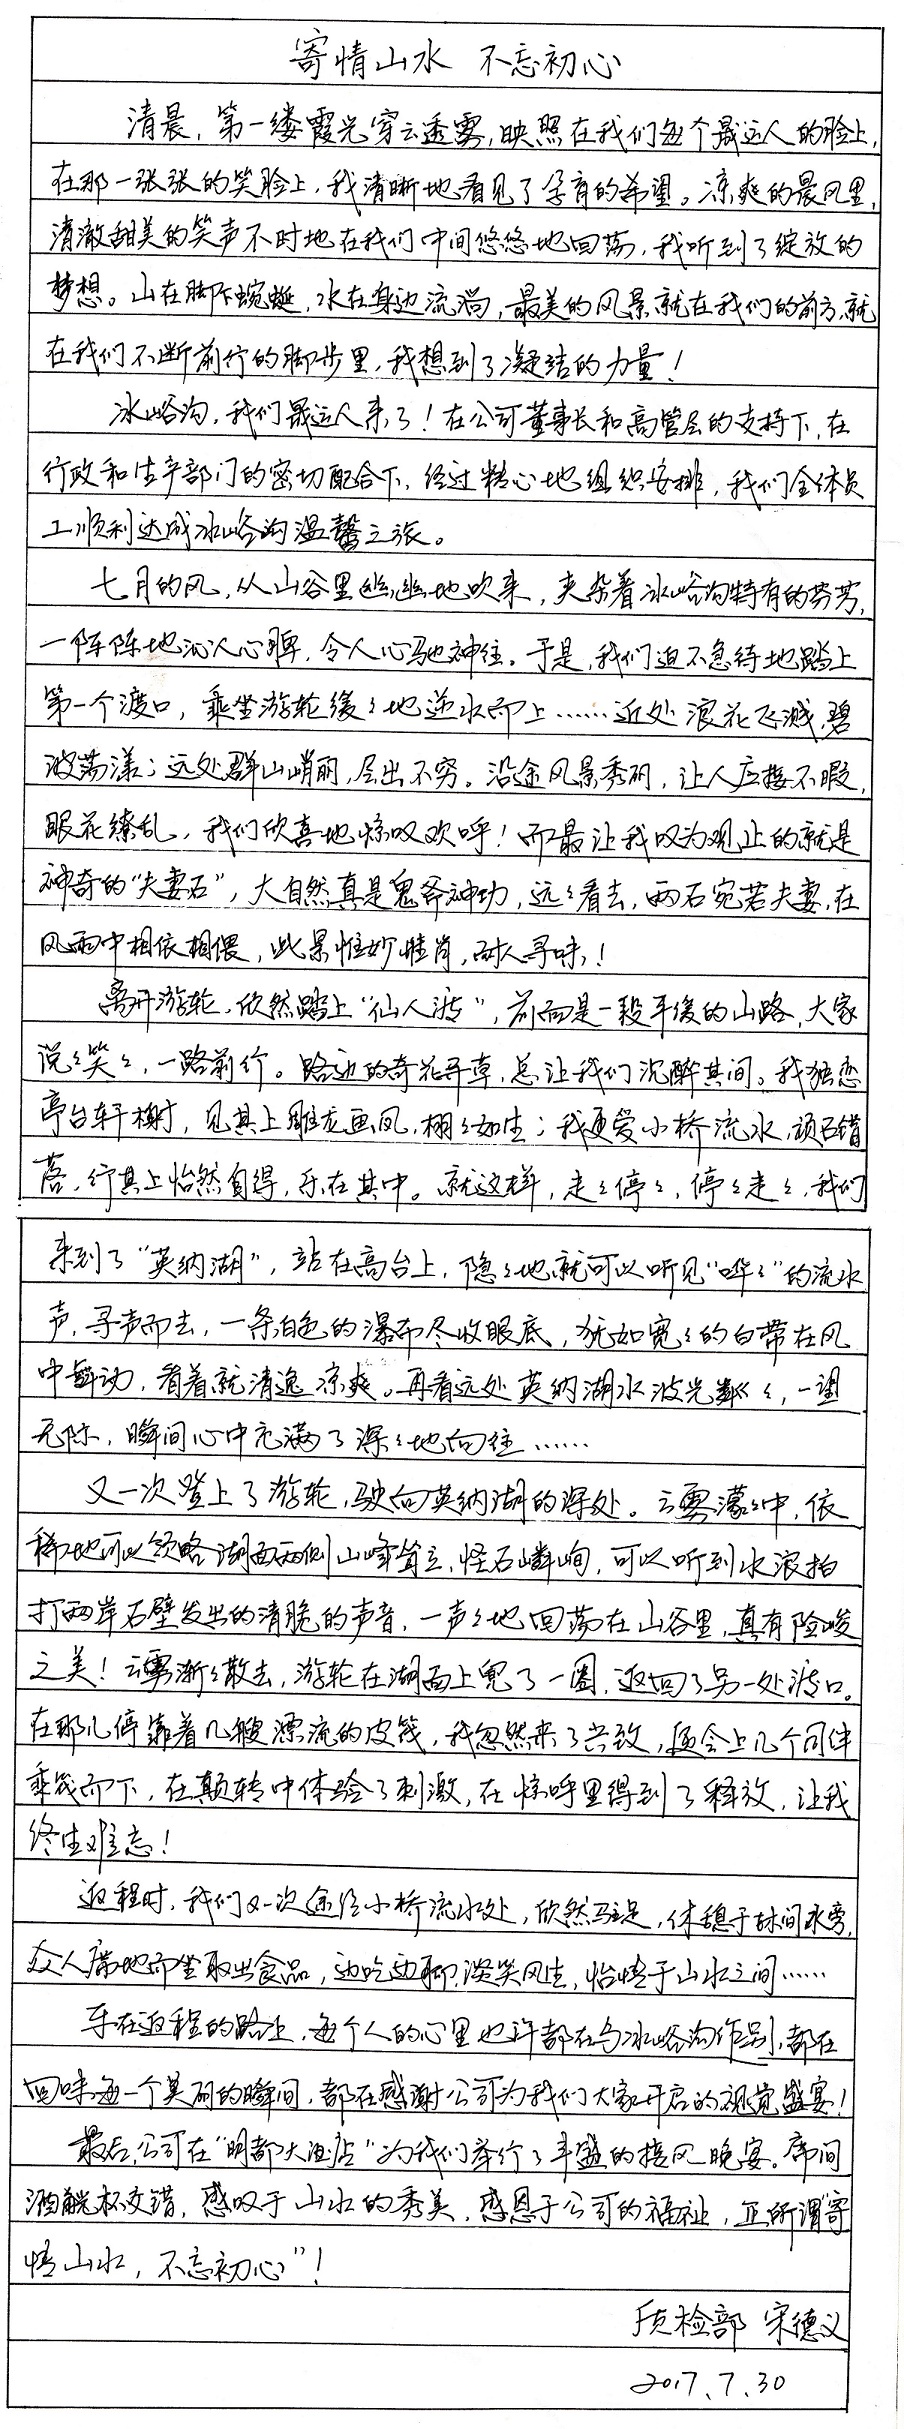 寄情山水 不忘初心
清晨，第一缕霞光穿云透雾，映照在我们每个晟运人的脸上，
在那一张张的笑脸上，我清晰地看见了孕育的希望。凉爽的晨风里，
清澈甜美的笑声不时地在我们中间悠悠地回荡，我听到了绽放的
梦想。山在脚下蜿蜒，水在身边流淌，最美的风景就在我们的前方，就
在我们不断前行的脚步里，我想到了凝结的力量！
冰峪沟，我们晟运人来了！在公司董事长和高管层的支持下，在
行政和生产部门的密切配合下，经过精心地组织安排，我们全体员
工顺利达成冰峪沟温馨之旅。
七月的风，从山谷里幽幽地吹来，夹杂着冰峪沟特有的芬芳，
一阵阵地沁人心脾，令人心驰神往。于是，我们迫不急待地踏上
第一个渡口，乘坐游轮缓缓地逆水而上……近处浪花飞溅，碧
波荡漾；远处群山峭丽，层出不穷。沿途风景秀丽，让人应接不暇，
眼花缭乱，我们欣喜地惊叹欢呼！而最让我叹为观止的就是
神奇的“夫妻石”，大自然真是鬼斧神功，远远看去，两石宛若夫妻，在
风雨中相依相偎，此景惟妙惟肖，耐人寻味！
离开游轮，欣然踏上“仙人渡”，前面是一段平缓的山路，大家
说说笑笑，一路前行。路边的奇花异草，总让我们沉醉其间。我独恋
亭台轩榭，见其上雕龙画凤，栩栩如生；我更爱小桥流水，顽石错
落，行其上怡然自得，乐在其中。就这样，走走停停，停停走走，我们
来到了“英纳湖”，站在高台上，隐隐地就可以听见“哗哗”的流水
声，寻声而去，一条白色的瀑布尽收眼底，犹如宽宽的白带在风
中舞动，看着就清逸凉爽。再看远处英纳湖水波光粼粼，一望
无际，瞬间心中充满了深深地向往……
又一次登上了游轮，驶向英纳湖的深处。云雾濛濛中，依
稀地可以领略湖面两侧山峰耸立，怪石嶙峋，可以听到水浪拍
打两岸石壁发出的清脆的声音，一声声地回荡在山谷里，真有险峻
之美！云雾渐渐散去，游轮在湖面上兜了一圈，返回了另一处渡口。
在那儿停靠着几艘漂流的皮筏，我忽然来了兴致，便会上几个同伴
乘筏而下，在颠转中体验了刺激，在惊呼里得到了释放，让我
终生难忘！
返程时，我们又一次途经小桥流水处，欣然驻足，休憩于林间水旁，
众人席地而坐取出食品，边吃边聊，谈笑风生，怡情于山水之间……
车在返程的路上，每个人的心里也许都在与冰峪沟作别，都在
回味每一个美丽的瞬间，都在感谢公司为我们大家开启的视觉盛宴！
最后，公司在“明都大酒店”为我们举行了丰盛的接风晚宴。席间
酒觥杯交错，感叹于山水的秀美，感恩于公司的福祉，正所谓“寄
情山水，不忘初心”！
质检部 宋德义
2017.7.30